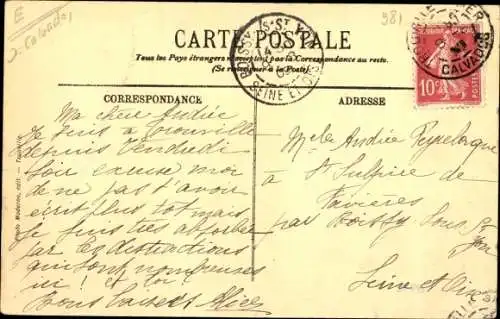 E
J. Calvados
981
CARTE POSTALE
Tous les Pays étrangers n'acceptent pas la Correspondance au recto.
(Se renseigner à la Poste).
BOISSY-S-ST YON
SEINE ET OISE
CALVADOS
10c
POSTES
CORRESPONDANCE
ADRESSE
Ma chère Andrée
Je suis à Trouville
depuis Vendredi
soir excuse moi
de ne pas t'avoir
écrit plus tôt mais
je suis très absorbée
par les distractions
qui sont nombreuses
ici ! et toi !
Bons baisers Alice
Melle Andrée
à St Sulpice de
Favières
par Boissy sous St
Yon
Seine et Oise